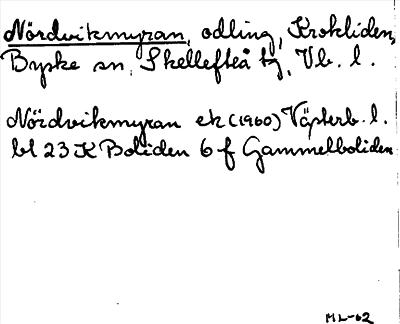 Nördvikmyran, odling, Krokliden,
Byske sn, Skellefteå tg, Vb. l.
Nördvikmyran ek (1960) Västerb. l.
bl 23 K Boliden 6 f Gammelboliden
ML-62